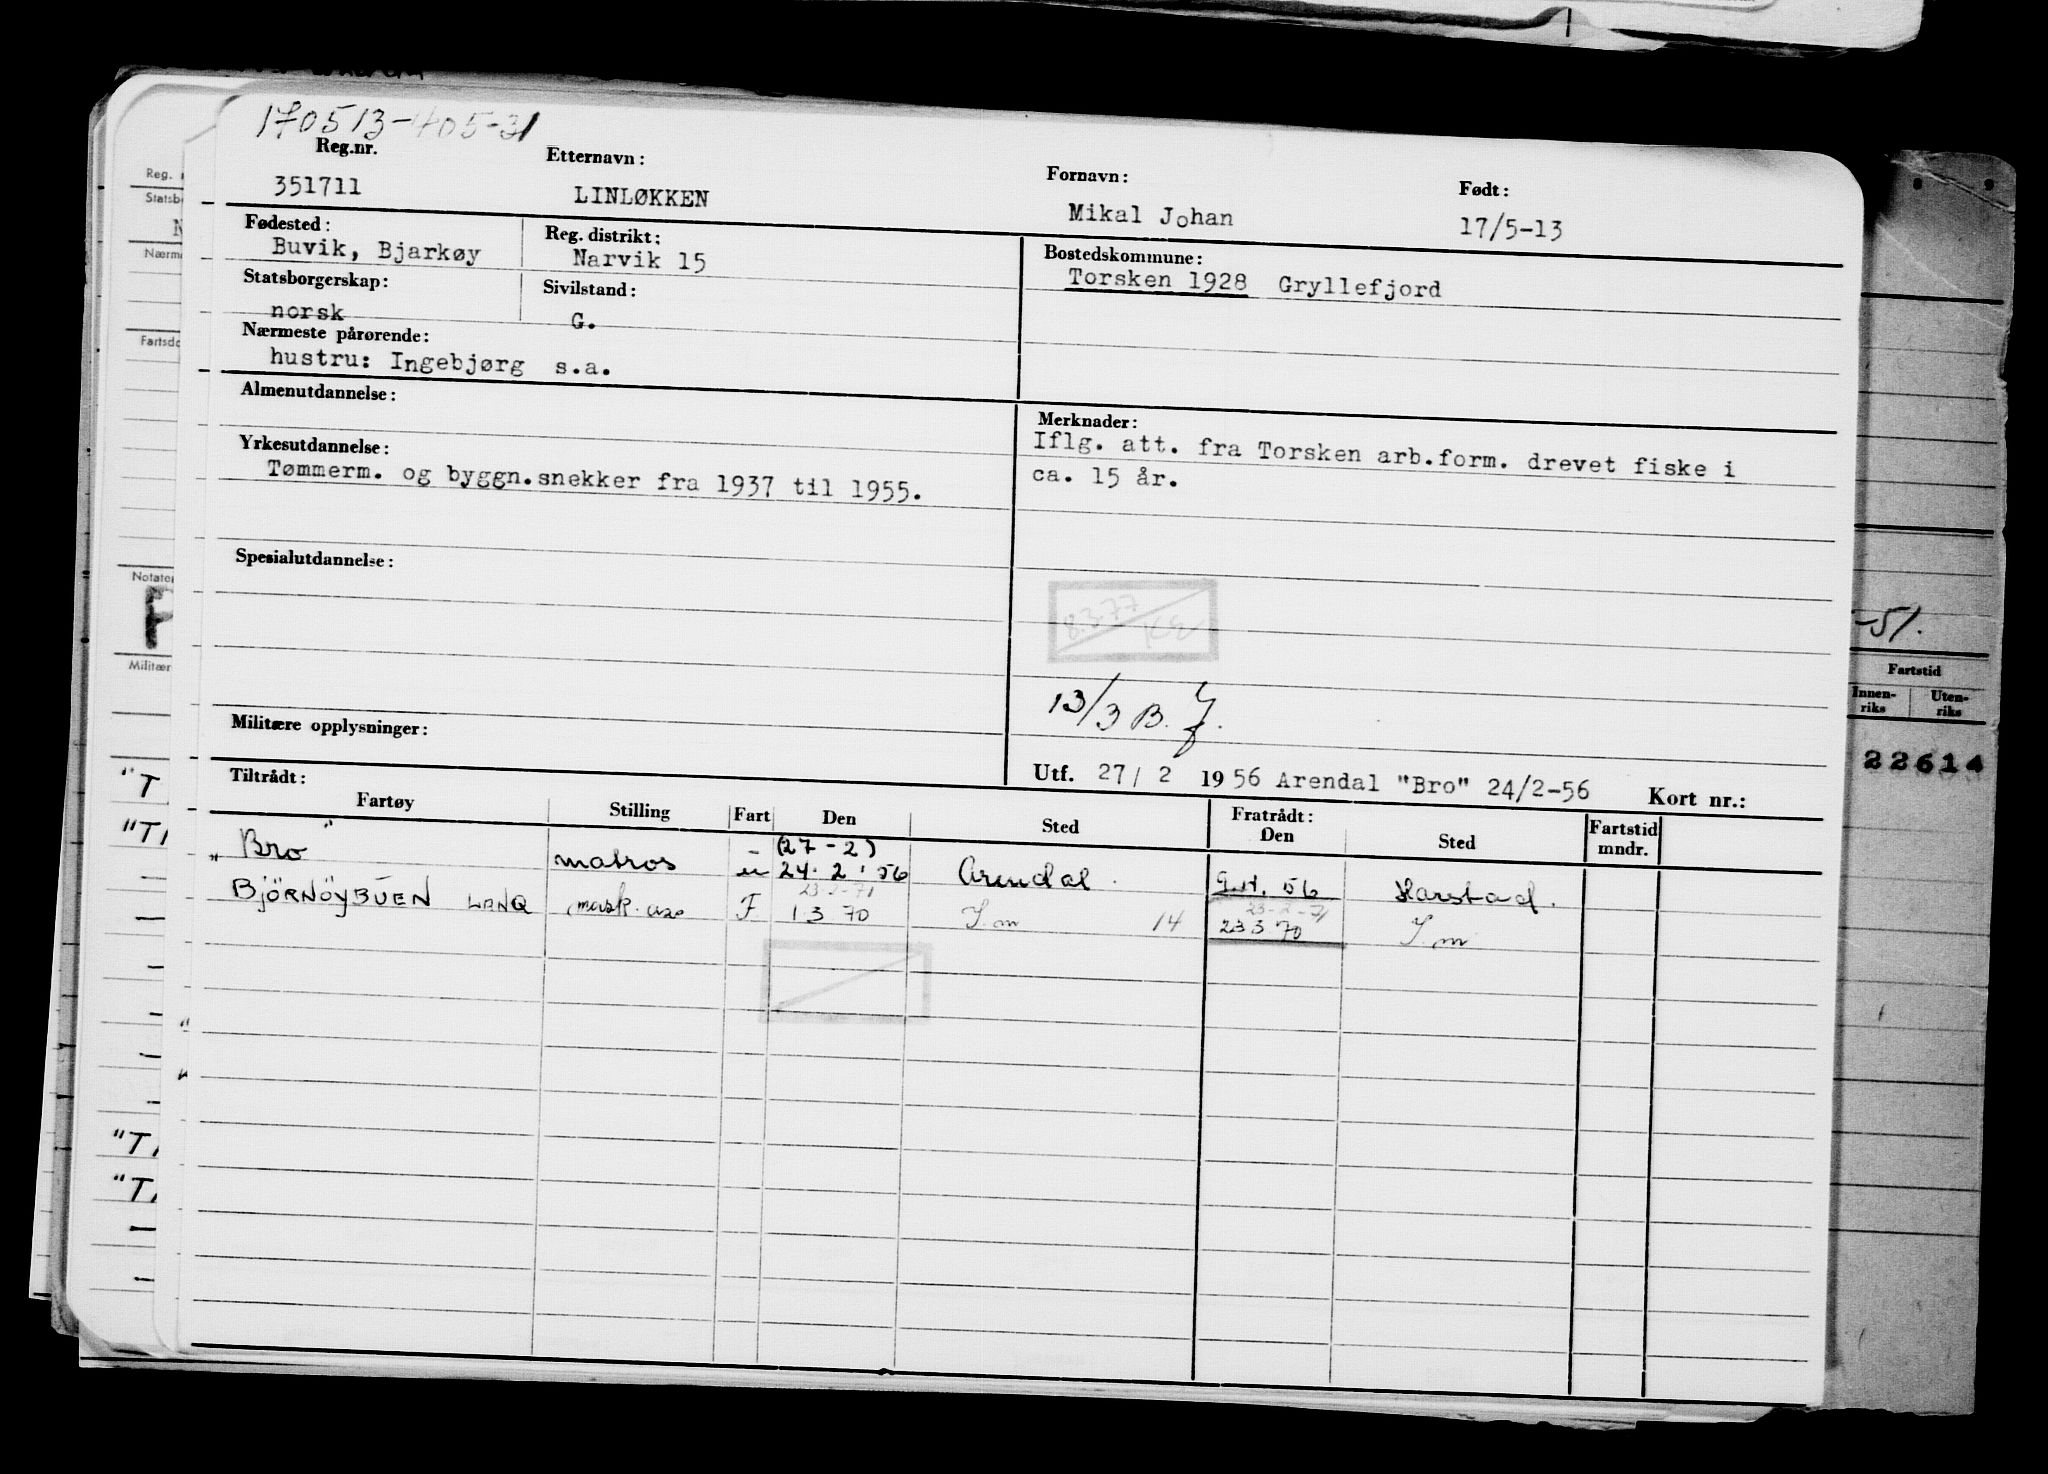 170513-405-31
Reg.nr. Etternavn: Fornavn: Født:
351711 LINLØKKEN Mikal Johan 17/5-13
Fødested: Reg. distrikt: Bostedskommune:
Buvik, Bjarkøy Narvik 15 Torsken 1928 Gryllefjord
Statsborgerskap: Sivilstand:
norsk G.
Nærmeste pårørende:
hustru: Ingebjørg s.a.
Almenutdannelse: Merknader:
Iflg. att. fra Torsken arb.form. drevet fiske i
ca. 15 år.
Yrkesutdannelse:
Tømmerm. og byggn.snekker fra 1937 til 1955.
Spesialutdannelse:
8.3.77
13/3 B.
Militære opplysninger:
Utf. 27/ 2 1956 Arendal "Bro" 24/2-56 Kort nr.:
Tiltrådt: Fratrådt:
Fartøy Stilling Fart Den Sted Den Sted Fartstid mndr.
(27-2)
"Bro" matros u 24.2.56 Arendal. 9.4.56 Harstad.
23-2-71 23-2-71
BJÖRNÖYBUEN LANQ mask. ass F 1 3 70 I.m 14 23 3 70 I.m
Reg.
Statsb
Nærm
Fartsd
Notater
Militær
"T
"T
"T
-51.
Fartstid
Innen-riks Uten-riks
22614